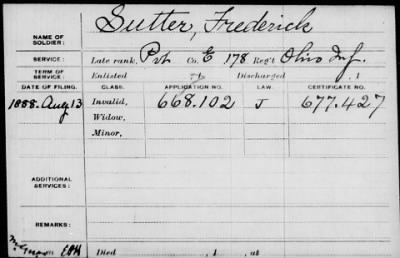 NAME OF SOLDIER: Sutter, Frederick
SERVICE: Late rank, Pvt Co. E 178 Reg't Ohio Inf.
TERM OF SERVICE: Enlisted , 1 Discharged , 1
DATE OF FILING. CLASS. APPLICATION NO. LAW. CERTIFICATE NO.
1888. Aug 13 Invalid, 668.102 J 677.427
Widow,
Minor,
ADDITIONAL SERVICES:
REMARKS:
Died , 1 , at